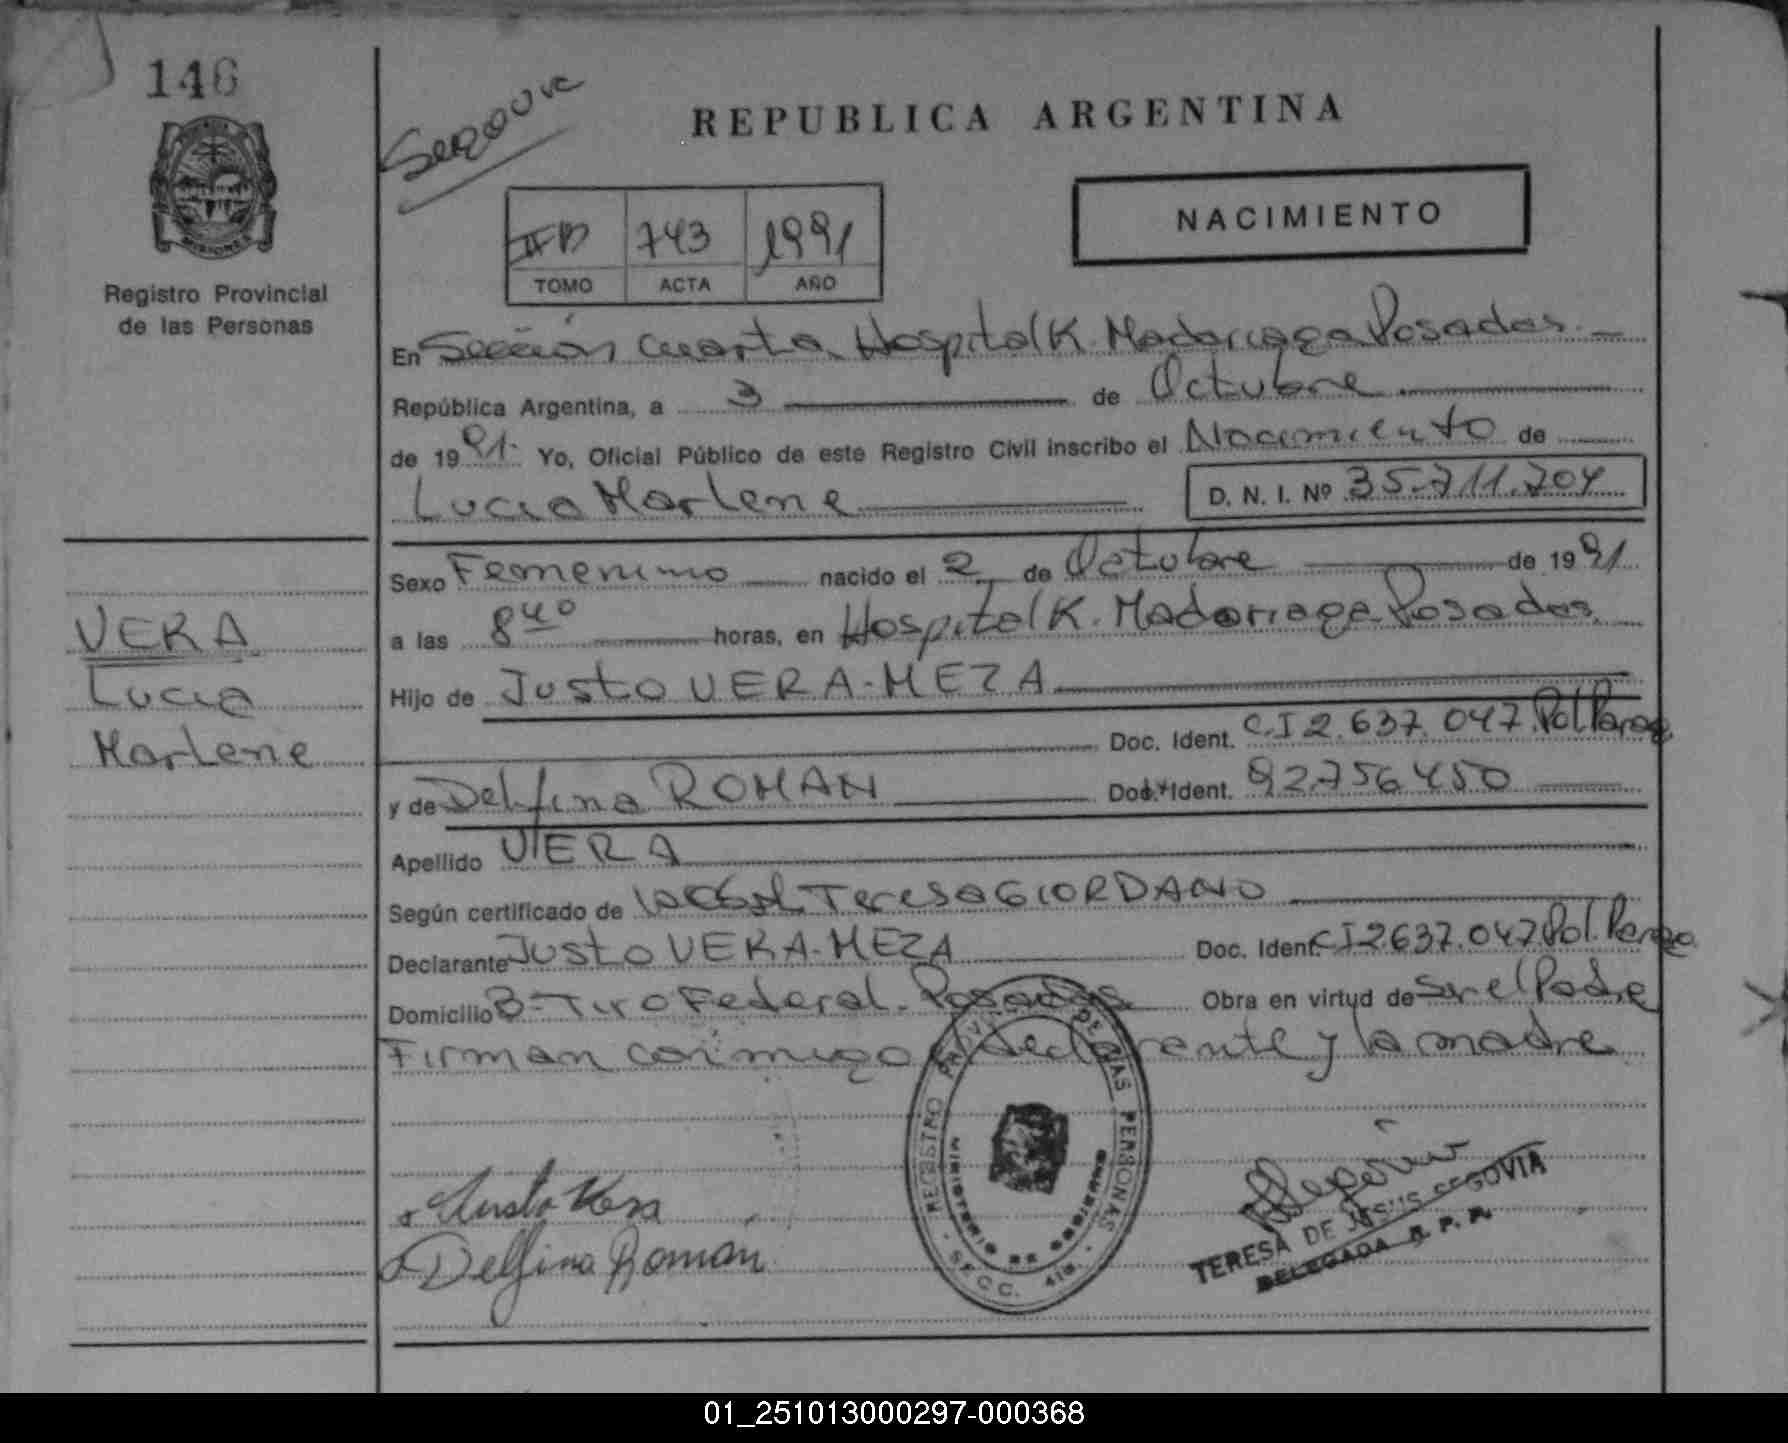 146
Segovia
REPUBLICA ARGENTINA
MISIONES
NACIMIENTO
743 1991
TOMO ACTA AÑO
Registro Provincial
de las Personas
En Sección Cuarta Hospital K. Madariaga Posadas
República Argentina, a 3 de Octubre
de 1991. Yo, Oficial Público de este Registro Civil inscribo el Nacimiento de
Lucia Marlene D. N. I. Nº 35.711.704
Sexo Femenino nacido el 2 de Octubre de 1991
a las 8 40 horas, en Hospital K. Madariaga Posadas.
Hijo de Justo VERA-MEZA
Doc. Ident. C.I 2.637.047 Pol Parag
y de Delfina ROMAN Doc. Ident. 92756450
Apellido VERA
Según certificado de la Obst. Teresa GIORDANO
Declarante Justo VERA-MEZA Doc. Ident. CI 2637.047 Pol. Parag.
Domicilio B-Tiro Federal. Posadas Obra en virtud de Ser el Padre
Firman conmigo declarante y la madre
VERA
Lucia
Marlene
Justo Vera
Delfina Román
REGISTRO PROVINCIAL DE LAS PERSONAS
MINISTERIO DE GOBIERNO
SECC. 4ta.
TERESA DE JESUS SEGOVIA
DELEGADA R. P. P.
01_251013000297-000368